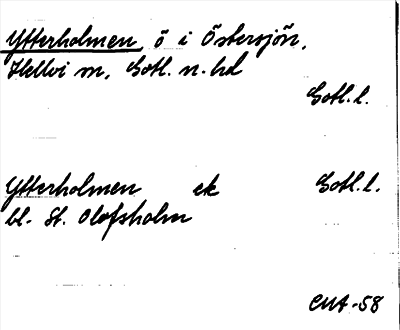 Ytterholmen ö i Östersjön,
Hellvi sn, Gotl. n. hd
Gotl. l.
Ytterholmen ek Gotl. l.
bl. St. Olofsholm
CMA-58